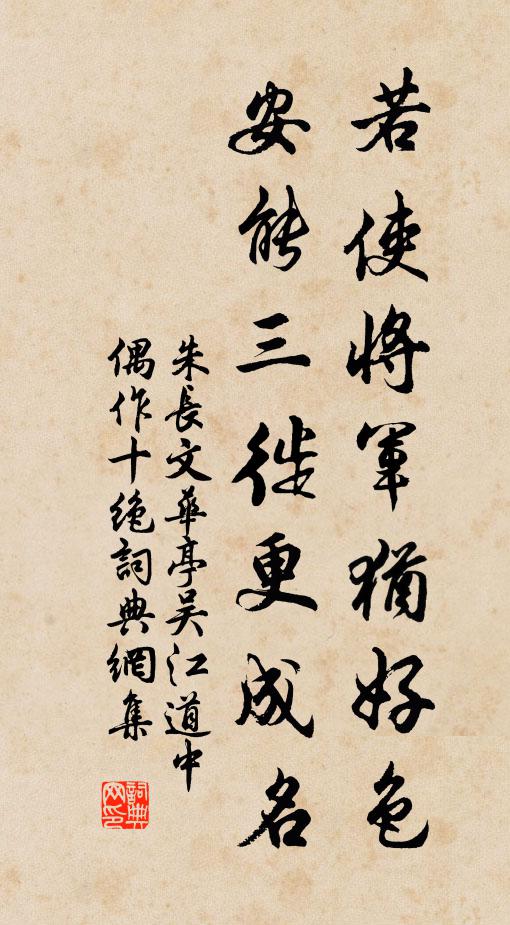 若使將軍猶好色
安能三徙更成名
朱長文華亭吴江道中
偶作十絶詞典網集
詞典网印